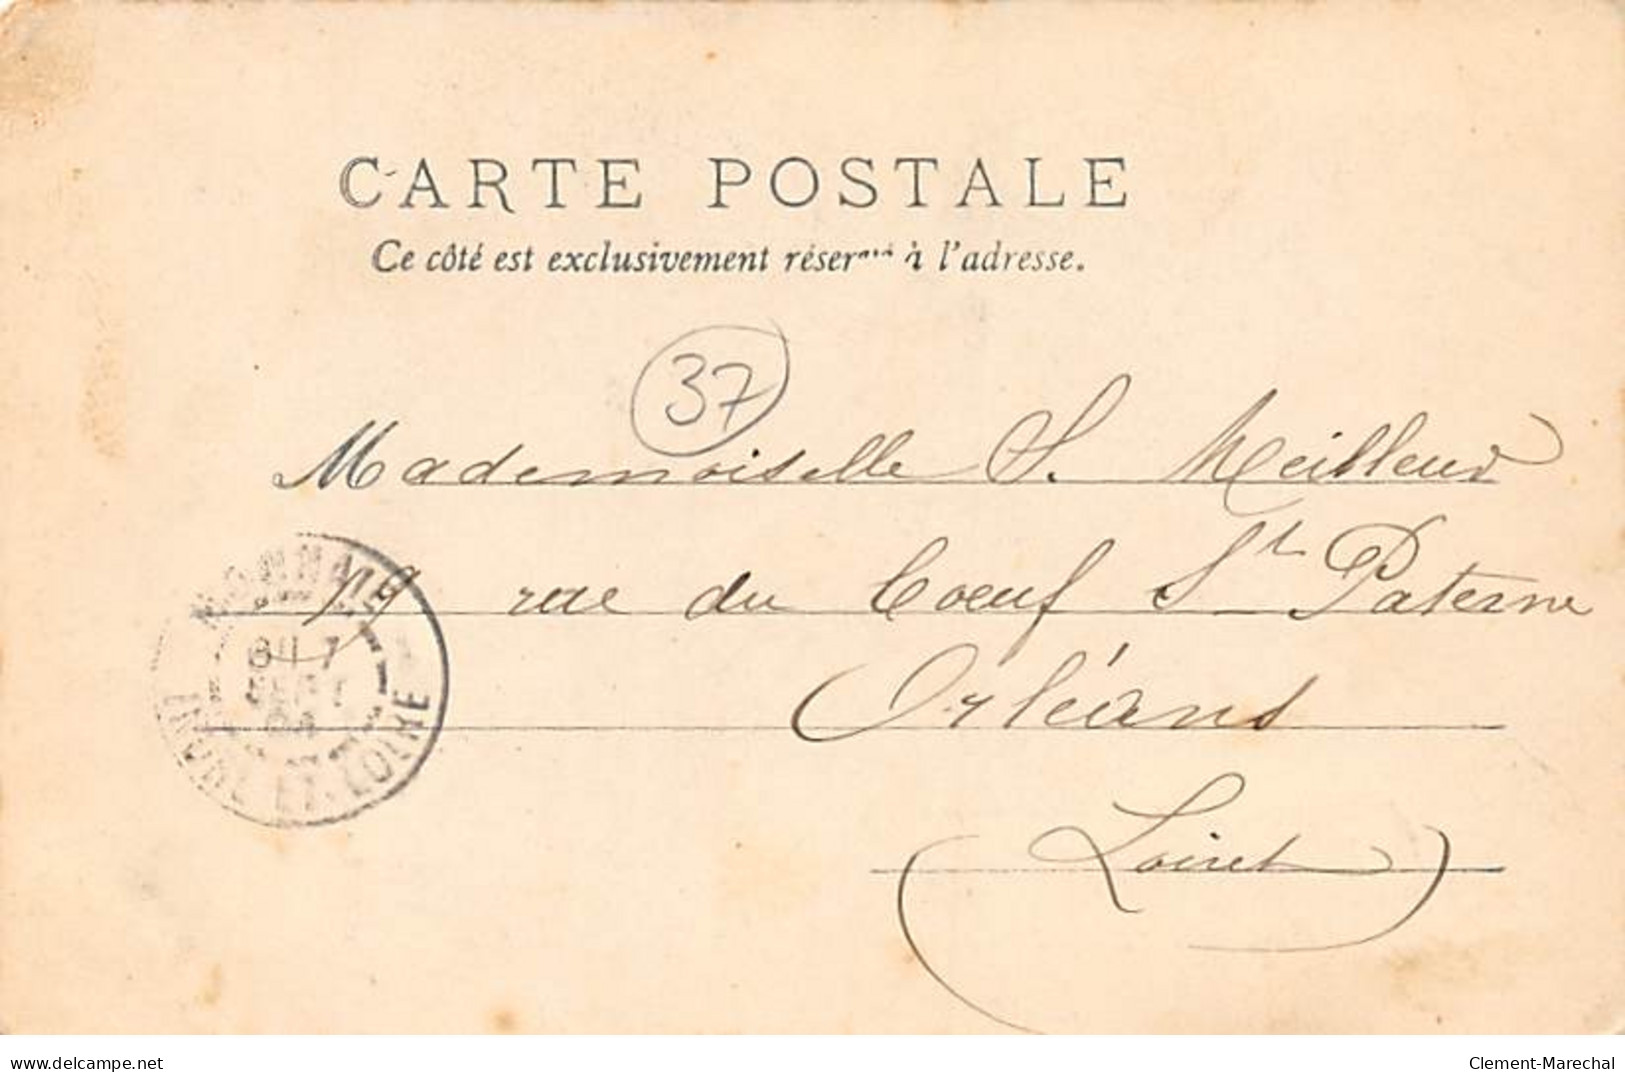 CARTE POSTALE
Ce côté est exclusivement réservé à l'adresse.
37
Mademoiselle S. Meilleur
19 rue du Coeuf St Paterne
Orléans
(Loiret)
MONNAIE
INDRE ET LOIRE
www.delcampe.net
Clement-Marechal